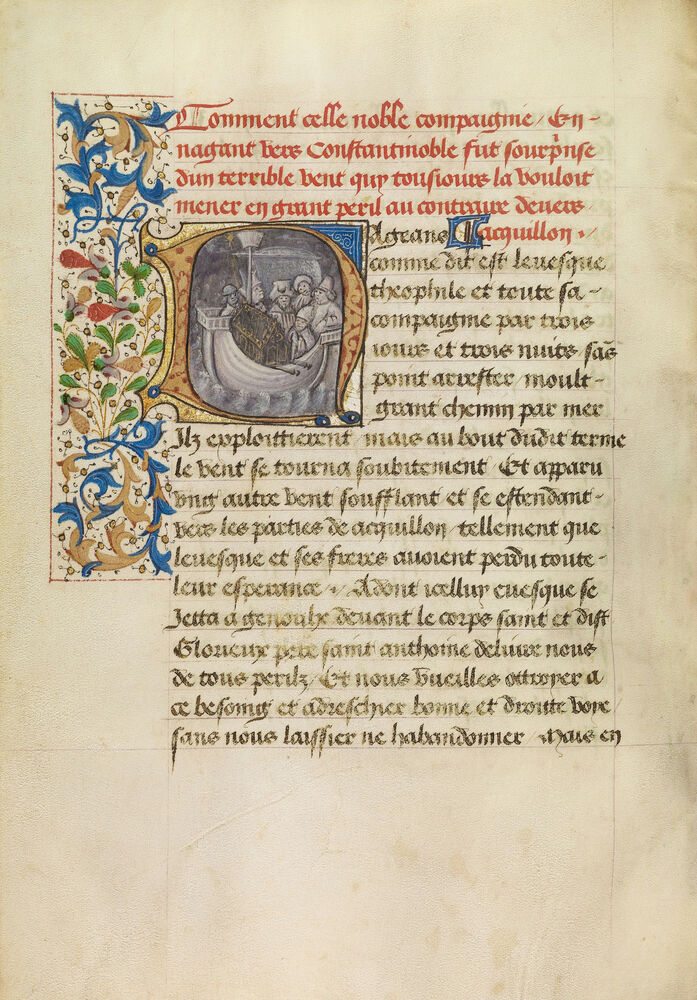 Comment celle noble compaignie / En
nagant vers Constantinoble fut sourprinse
dun terrible vent quy tousiours la vouloit
mener en grant peril au contraire devers
acquillon ·/
Nageans
comme dit est levesque
theophile et toute sa -
compaignie par trois
iours et trois nuits sãs
point arrester / moult -
grant chemin par mer
Ilz exploittierent / mais au bout dudit terme
le vent se tourna soubitement / Et apparu
vng autre vent soufflant et se estendant -
vers les parties de acquillon / tellement que
levesque et ses freres avoient perdu toute -
leur esperance ·/ Adont icelluy evesque se
Jetta a genoulx devant le corps saint et dist
Glorieux pere saint anthoine delivre nous
de tous perilz / Et nous vueilles ottroyer a
ce besoing et adreschier bonne et droitte voye
sans nous laissier ne habandonner / Mais en